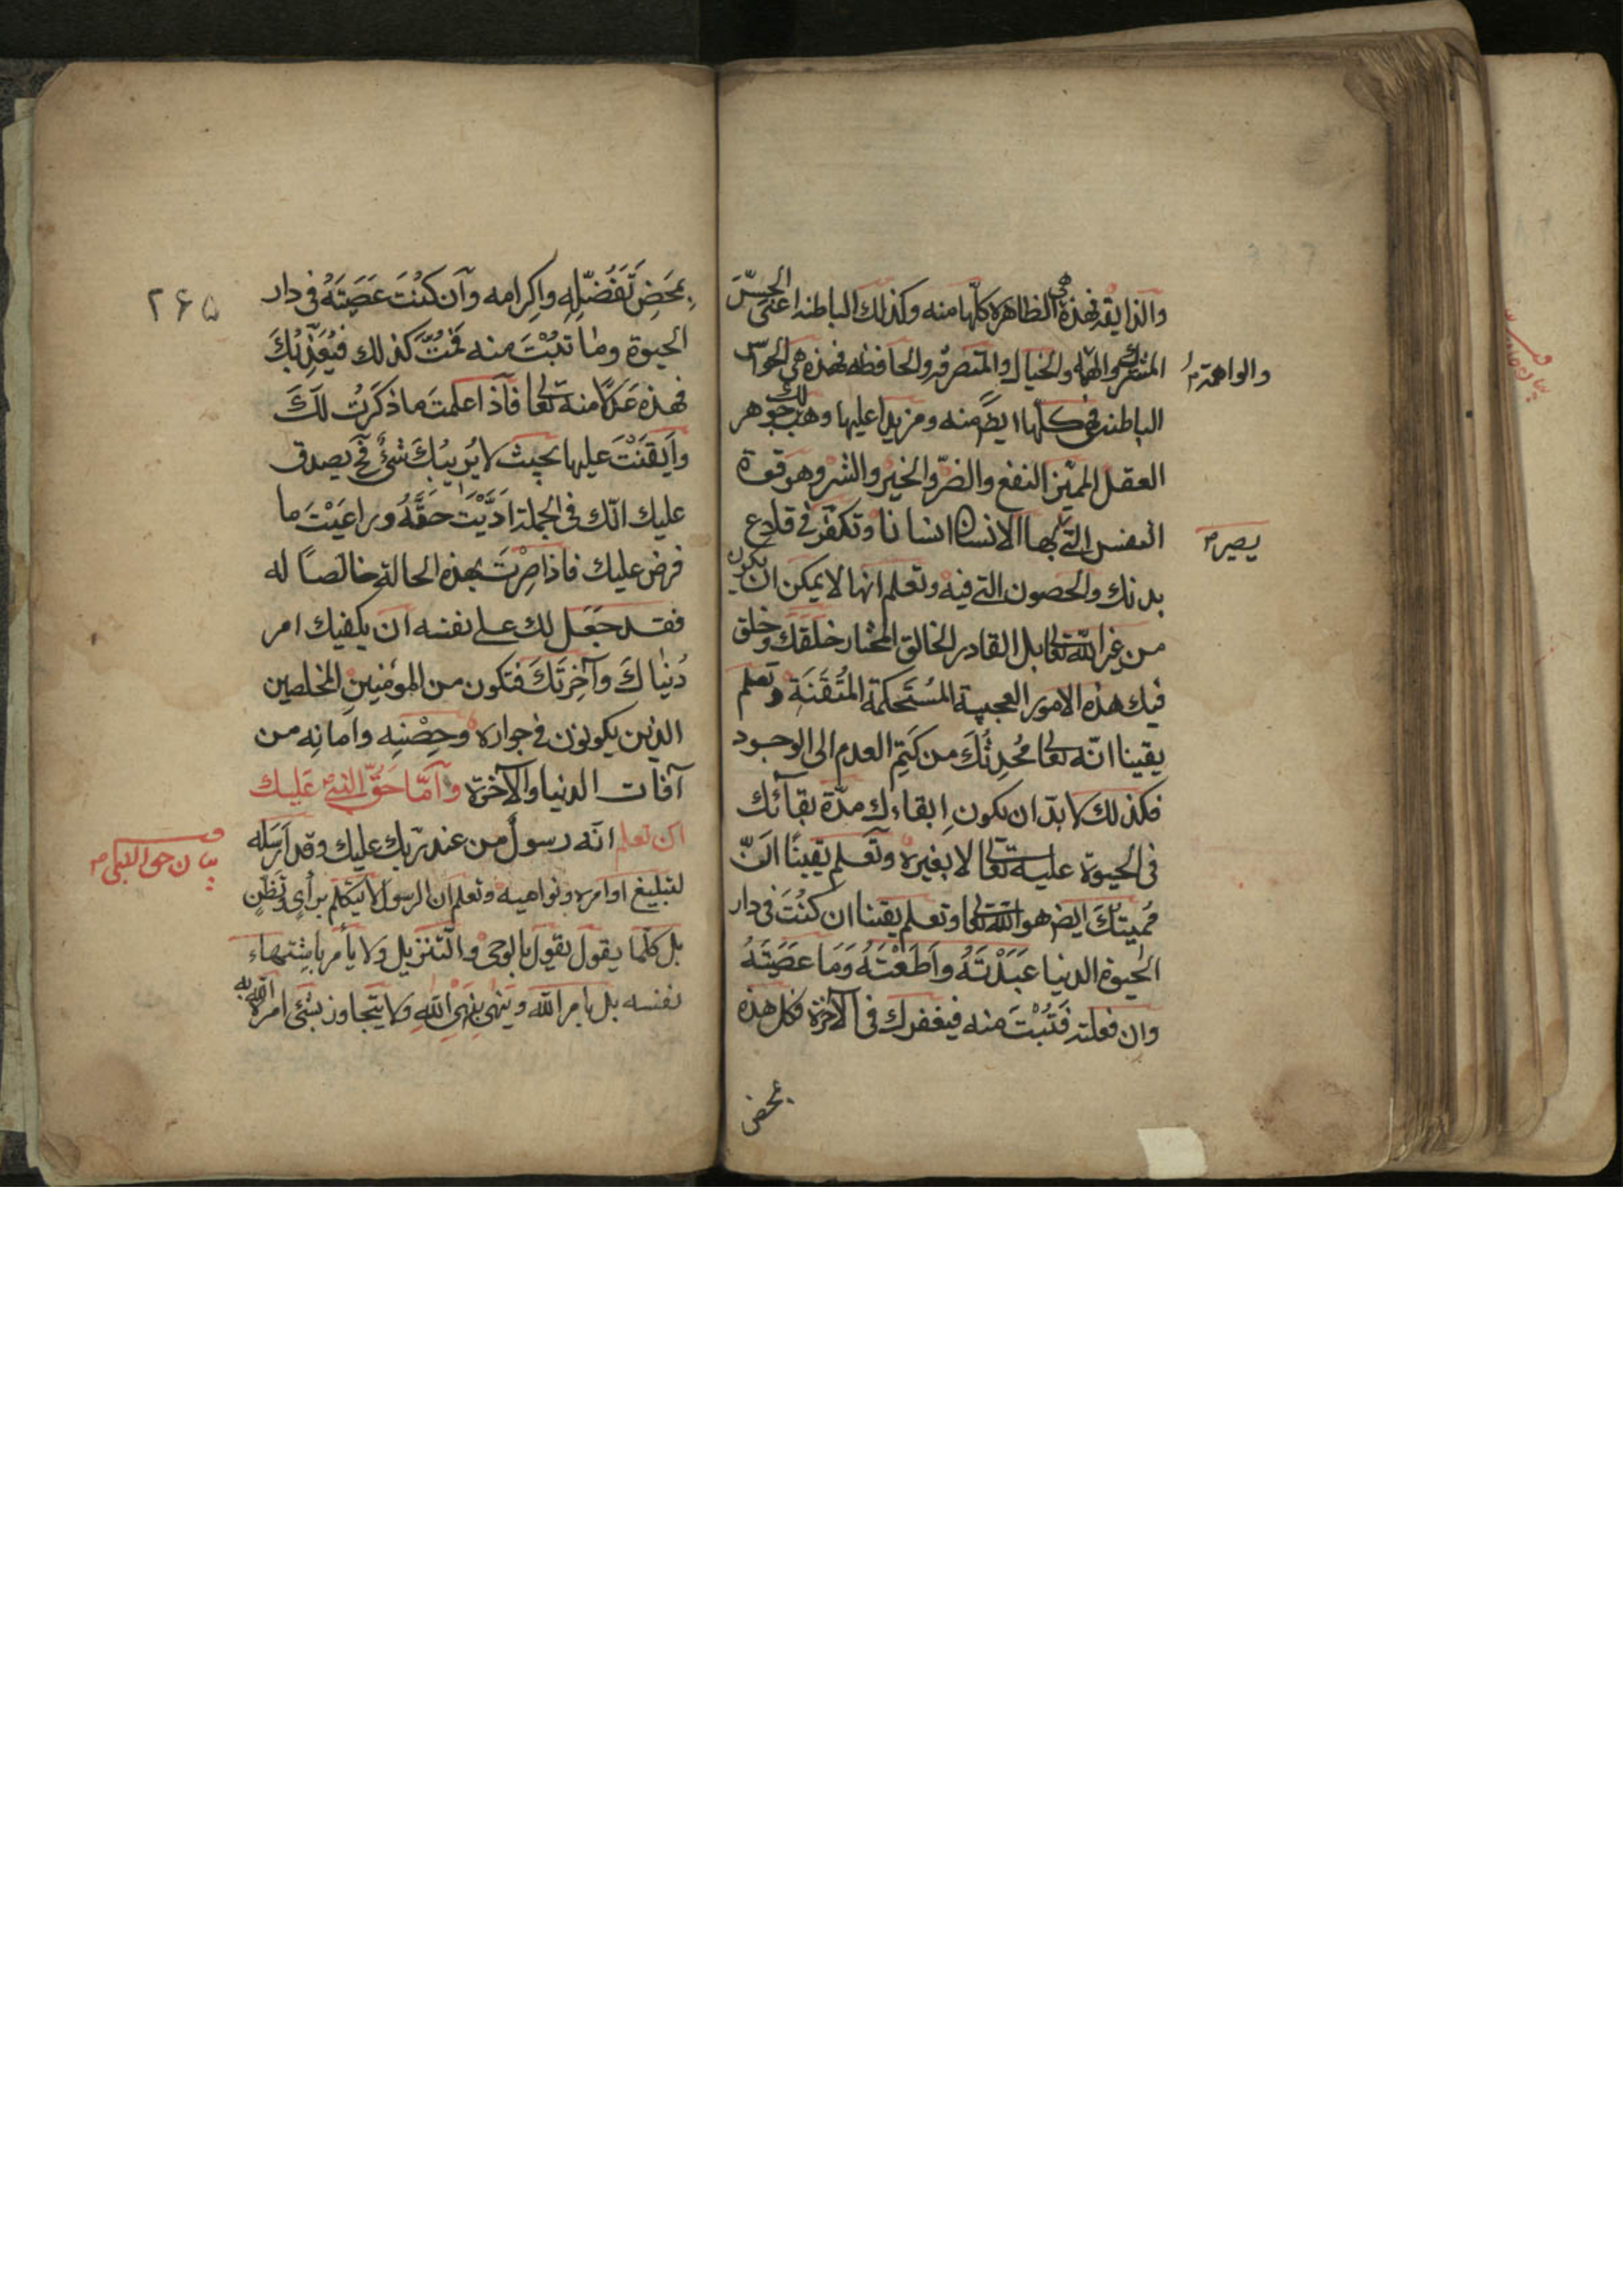 والذايقه فهذه هي الظاهره كلّها منه وكذلك الباطنه اعنى الحسّ
المشترك والخيال والمتصرفه والحافظه فهذه هي الحواس
والواهمة
الباطنه في كلّها ايضً منه ومزيدا عليها وهب لك جوهر
العقل المميّز النفع والضرّ والخير والشر وهو قوة
النفس التي بها الانسان انسانا وتكفّر في قلاع
يصير
بدنك والحصون التي فيه وتعلم انها لا يمكن ان يكون
من غير الله تعا بل القادر الخالق المختار خلقك وخلق
فيك هذه الامور العجيبة المُسْتَحكمة المُتْقَنَة وتعلم
يقينا انّه تعا مُحْدِثُكَ من كَتِم العدم الى الوجود
فكذلك لا بدّ ان يكون اِبقاءك مدّة بقآئك
فى الحيوة عليه تعا لا بغيره وتعلم يقينًا انّ
مُميتُكَ ايض هو الله تعا وتعلم يقينا ان كنْتَ فى دار
الحيوة الدنيا عَبَدْتَهُ واَطَعْتَهُ وَمَا عَصَيْتَهُ
وان فعلته فَتُبْتَ منه فيغفرك فى الآخرة فكل هذه
بمحض
۲۶۵
بمَحَضِ تَفَضّلِهِ واِكرامه وآن كنْتَ عَصَيتَهُ فى دار
الحيوة وما تبْتَ منه فمُتَّ كذلك فيُعَذّبُكَ
فهذه عَدلًا منه تعا فآذا علمتَ ما ذكَرتُ لكَ
واَيقَنْتَ عليها بحيث لا يُريبُكَ شئٌ فح يصدق
عليك انّك فى الجملة اَدَّيْتَ حَقَّهُ وراعَيْتَ ما
فرض عليك فاذا صِرْتَ بهذه الحالة خالصًا له
فقد جَعَل لك على نفسه ان يكفيك امر
دُنياكَ وآخِرَتكَ فتكون من المؤمنين المخلصين
الذين يكونون فى جواره وحِصْنِه واَمانِه من
آفات الدنيا والآخرة وآمّا حَقّ النبىّ عَليك
ان تعلم انّه رسولٌ من عند ربّك عليك وقد اَرسَله
بيان حق النبى
لتبليغ اوامره ونواهيه وتعلم ان الرسول لا يتكلّم برأىٍ وظَنٍ
بل كلّما يقول يقول بالوحى والتّنزيل ولا يأمر باشتهاء
نفسه بل يامر الله وينهى بنَهْىِ اللهِ ولا يتجاوز بشئ امر الله به